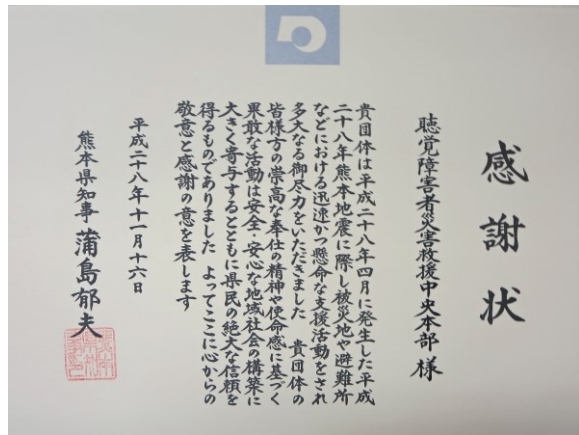 感謝状
聴覚障害者災害救援中央本部 様
貴団体は平成二十八年四月に発生した平成
二十八年熊本地震に際し被災地や避難所
などにおける迅速かつ懸命な支援活動をされ
多大なる御尽力をいただきました 貴団体の
皆様方の崇高な奉仕の精神や使命感に基づく
果敢な活動は安全・安心な地域社会の構築に
大きく寄与するとともに県民の絶大な信頼を
得るものでありました よってここに心からの
敬意と感謝の意を表します
平成二十八年十一月十六日
熊本県知事 蒲島郁夫